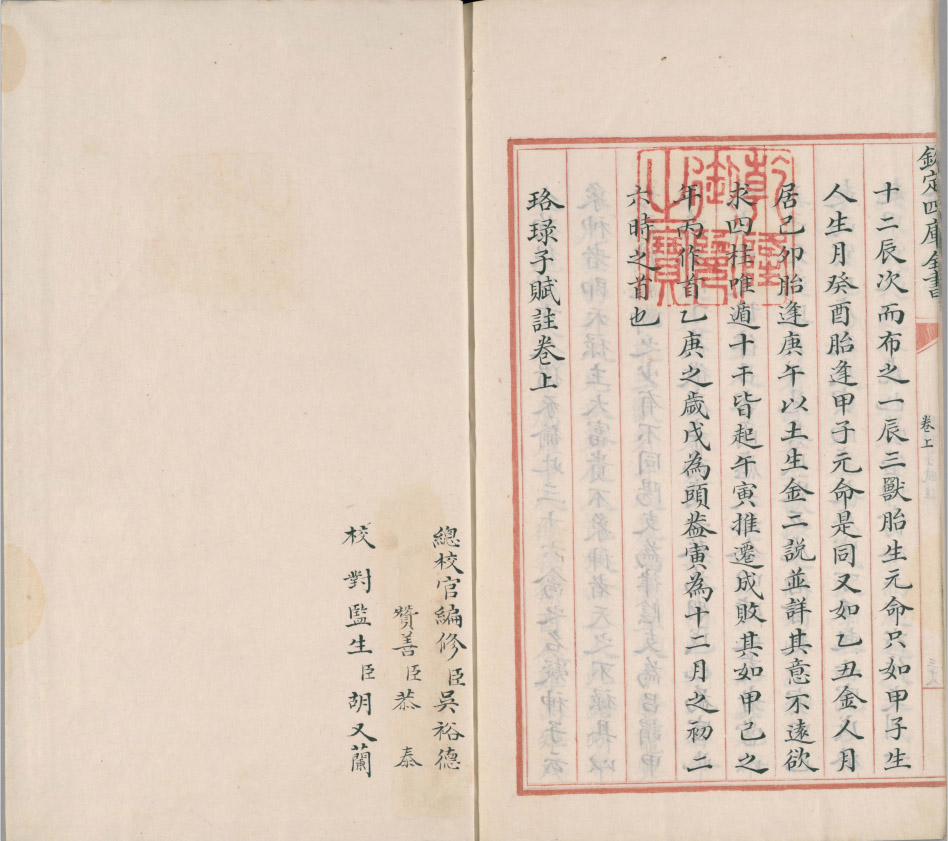 欽定四庫全書
卷上
十二辰次而布之一辰三獸胎生元命只如甲子生
人生月癸酉胎逢甲子元命是同又如乙丑金人月
居己卯胎逢庚午以土生金二説並詳其意不遠欲
求四柱唯遁十干皆起午寅推遷成敗其如甲己之
年丙作首乙庚之歲戊為頭葢寅為十二月之初二
六時之首也
珞琭子賦註卷上
乾隆御覽之寶
總校官編修臣吳裕德
贊善臣恭泰
校對監生臣胡又蘭